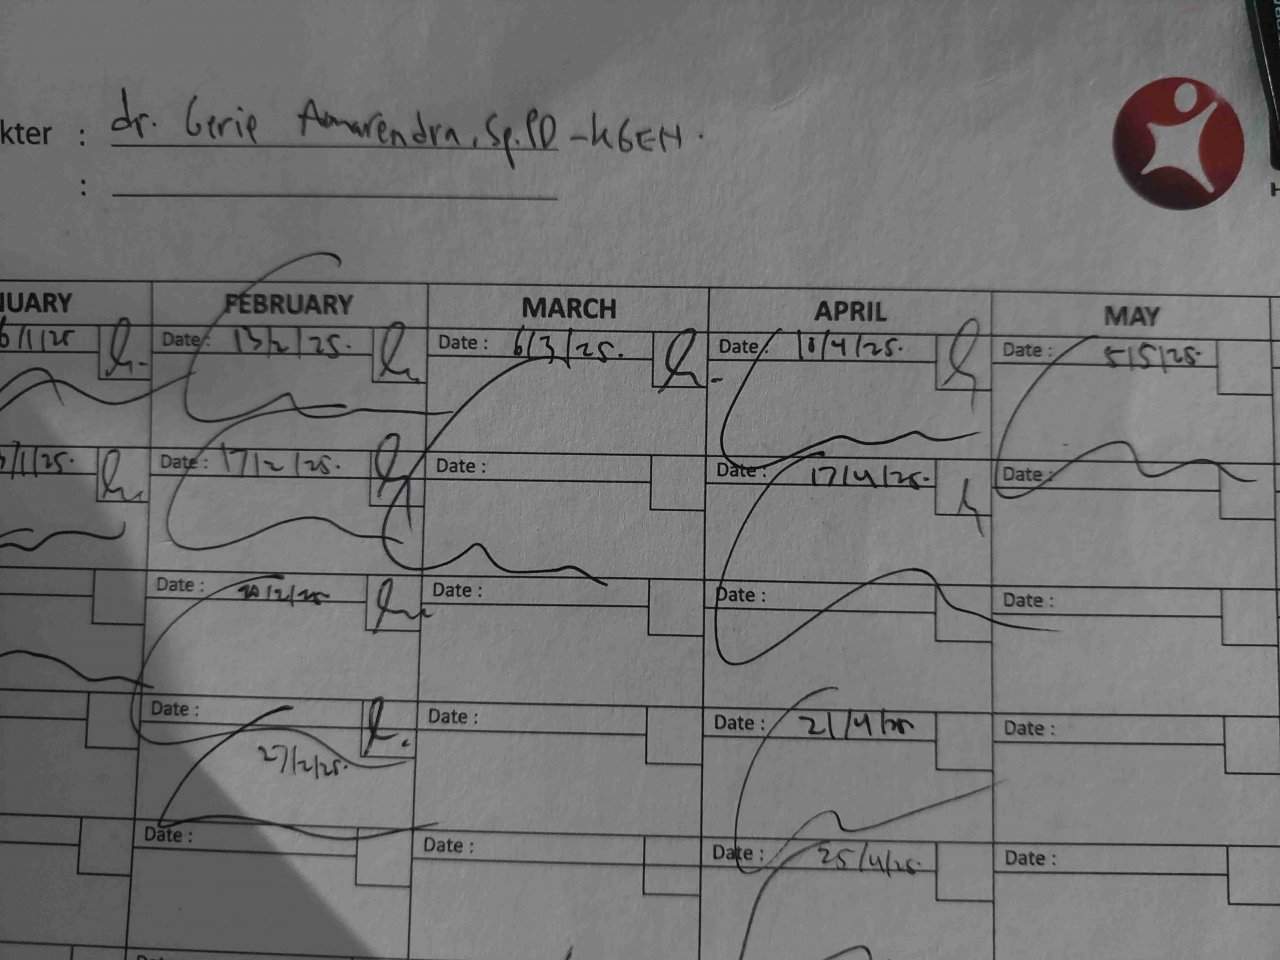 kter : dr. Gerie Amarendra, Sp.PD-KGEH.
:
NUARY FEBRUARY MARCH APRIL MAY
6/1/25 Date: 13/2/25. Date : 6/3/25. Date: 10/4/25. Date : 5/5/25.
/1/25. Date: 17/2/25. Date : Date: 17/4/25. Date :
Date : 20/2/25 Date : Date : Date :
Date : Date : Date : 21/4/25 Date :
27/2/25.
Date : Date : Date : 25/4/25. Date :